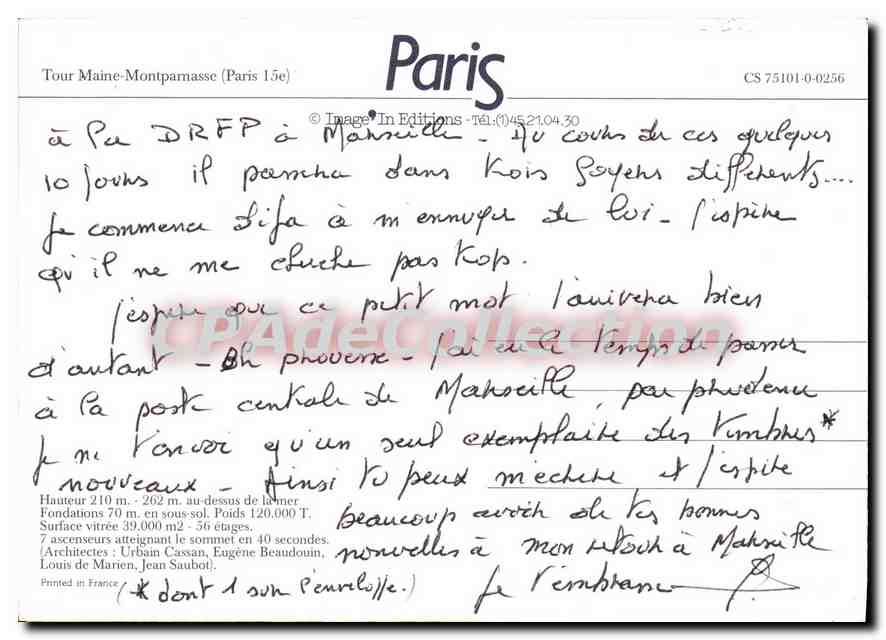 Paris
Tour Maine-Montparnasse (Paris 15e)
CS 75101-0-0256
© Image'In Editions - Tél:(1)45.21.04.30
à la DRFP à Marseille - Au cours de ces quelques
10 jours il passera dans trois foyers différents....
Je commence déjà à m'ennuyer de lui - j'espère
qu'il ne me cherche pas trop.
j'espère que ce petit mot t'arrivera bien
CPAdeCollection
d'autant - Eh phovense - j'ai eu le temps de passer
à la poste centrale de Marseille, par prudence
je ne t'envoie qu'un seul exemplaire des timbres*
nouveaux - Ainsi tu peux m'écrire et j'espère
beaucoup avoir de tes bonnes
nouvelles à mon retour à Marseille
(* dont 1 sur l'enveloppe.)
Je t'embrasse
Hauteur 210 m. - 262 m. au-dessus de la mer
Fondations 70 m. en sous-sol. Poids 120.000 T.
Surface vitrée 39.000 m2 - 56 étages.
7 ascenseurs atteignant le sommet en 40 secondes.
(Architectes : Urbain Cassan, Eugène Beaudouin,
Louis de Marien, Jean Saubot).
Printed in France